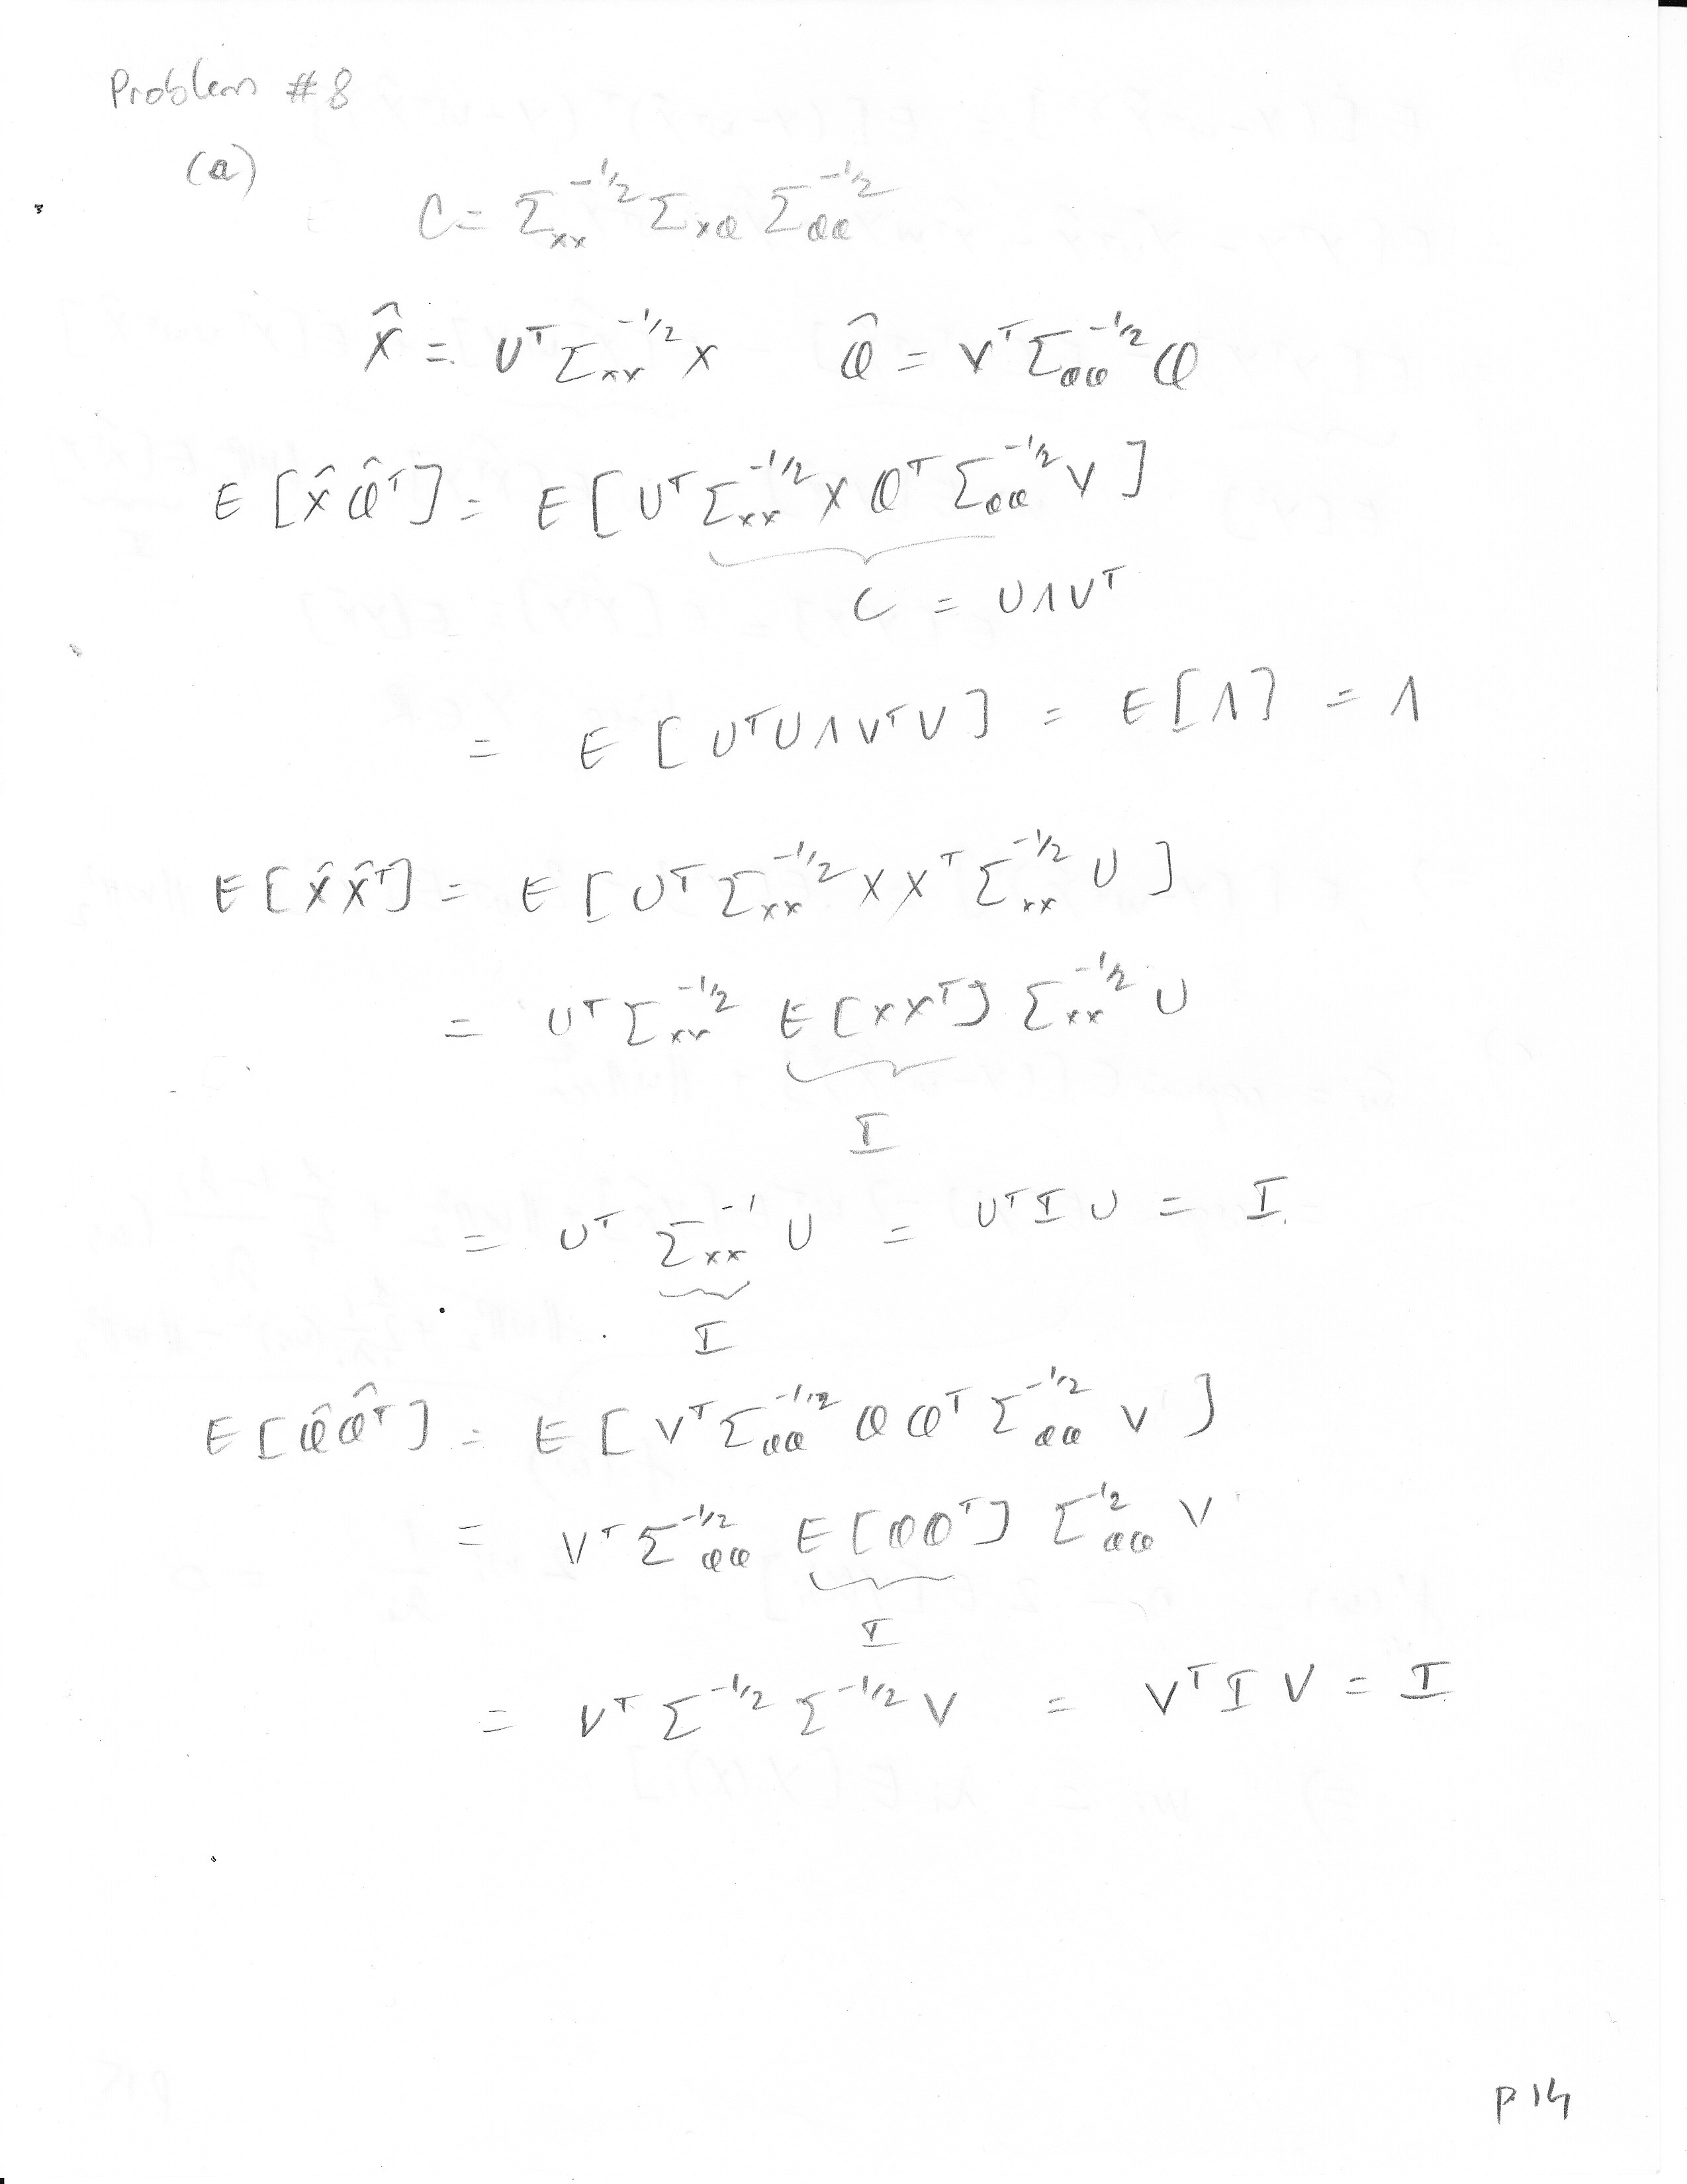 Problem #8
(a)
C = Σ_xx^{-1/2} Σ_xφ Σ_φφ^{-1/2}
X̂ = U^T Σ_xx^{-1/2} X   φ̂ = V^T Σ_φφ^{-1/2} φ
E[X̂ φ̂^T] = E[U^T Σ_xx^{-1/2} X φ^T Σ_φφ^{-1/2} V]
C = UΛV^T
= E[U^T U Λ V^T V] = E[Λ] = Λ
E[X̂ X̂^T] = E[U^T Σ_xx^{-1/2} X X^T Σ_xx^{-1/2} U]
= U^T Σ_xx^{-1/2} E[XX^T] Σ_xx^{-1/2} U
I
= U^T Σ_xx^{-1} U = U^T I U = I.
I
E[φ̂ φ̂^T] = E[V^T Σ_φφ^{-1/2} φ φ^T Σ_φφ^{-1/2} V]
= V^T Σ_φφ^{-1/2} E[φφ^T] Σ_φφ^{-1/2} V
I
= V^T Σ^{-1/2} Σ^{-1/2} V = V^T I V = I
P 14